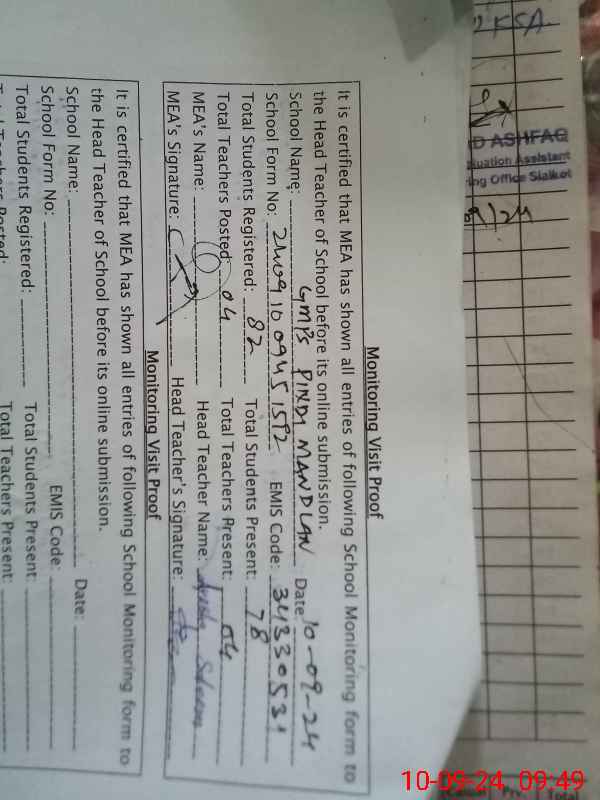 Monitoring Visit Proof
It is certified that MEA has shown all entries of following School Monitoring form to
the Head Teacher of School before its online submission.
School Name: GMPS PINDI MANDLAN Date: 10-09-24
School Form No: EMIS Code: 34330531
Total Students Registered: 82 Total Students Present: 78
Total Teachers Posted: 04 Total Teachers Present: 04
MEA's Name: Head Teacher Name:
MEA's Signature: Head Teacher's Signature:
Monitoring Visit Proof
It is certified that MEA has shown all entries of following School Monitoring form to
the Head Teacher of School before its online submission.
School Name: Date:
School Form No: EMIS Code:
Total Students Registered: Total Students Present:
Total Teachers Posted: Total Teachers Present:
D ASHFAQ
luation Assistant
ing Office Sialkot
Total
10-09-24 09:49